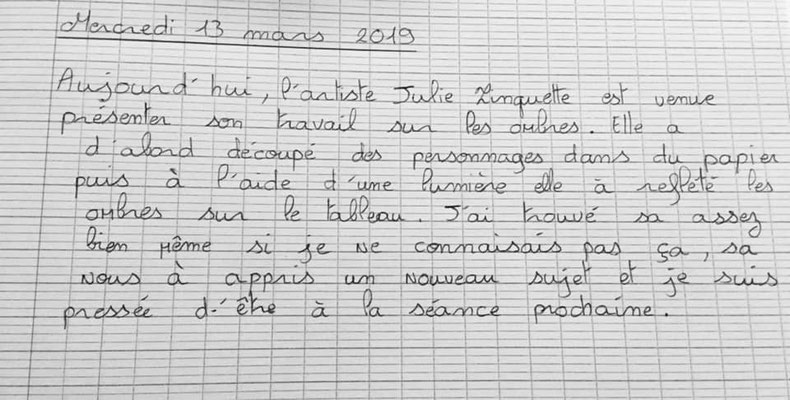 Mercredi 13 mars 2019
Aujourd'hui, l'artiste Julie Linquette est venue
présenter son travail sur les ombres. Elle a
d'abord découpé des personnages dans du papier
puis à l'aide d'une lumière elle à reflété les
ombres sur le tableau. J'ai trouvé sa assez
bien même si je ne connaisais pas ça, sa
nous à appris un nouveau sujet et je suis
pressée d'être à la séance prochaine.